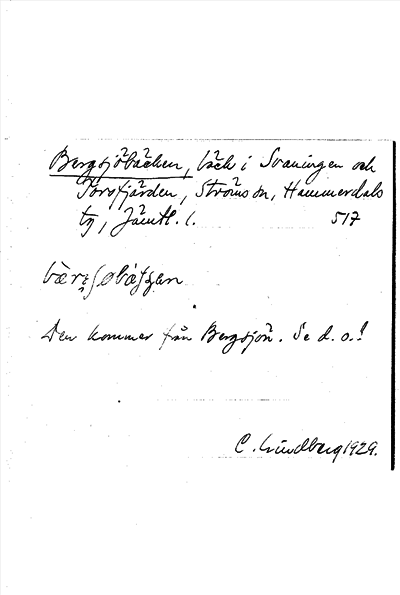 Bergsjöbäcken, bäck i Svaningen och
Törsfjärden, Ströms sn, Hammerdals
tg, Jämtl. l. 517
Den kommer från Bergsjön. Se d. o.!
C. Lindberg 1929.